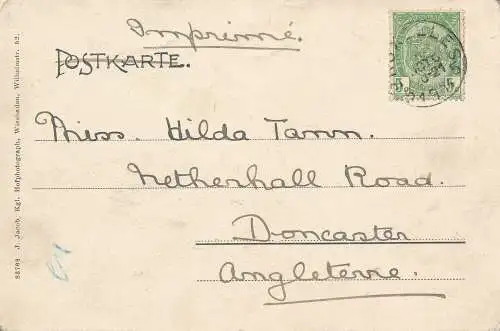 Imprimé.
POSTKARTE.
Miss. Hilda Tamn.
Netherhall Road.
Doncaster
Angleterre.
5 5
J. Jacob, Kgl. Hofphotograph, Wiesbaden, Wilhelmstr. 52.